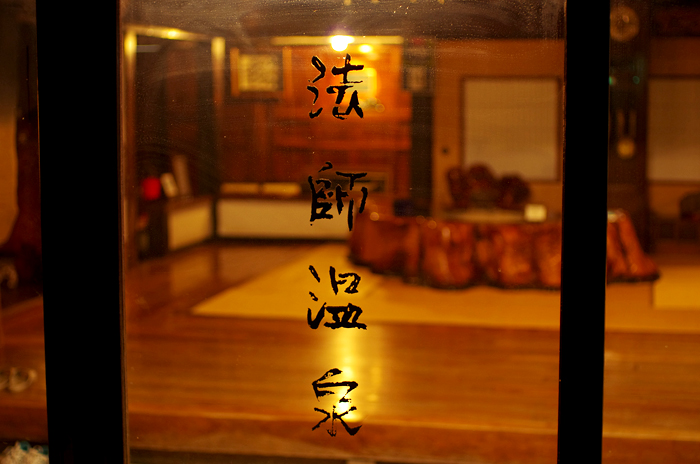 法師温泉